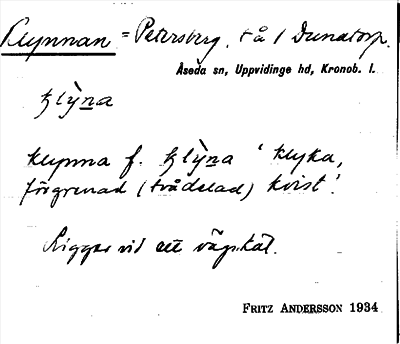 Klynnan = Petersberg, tå / Dunatorp.
Åseda sn, Uppvidinge hd, Kronob. l.
klỳna
klynna f. klỳna 'klyka,
förgrenad (tvådelad) kvist'.
Ligger vid ett vägskäl.
FRITZ ANDERSSON 1934